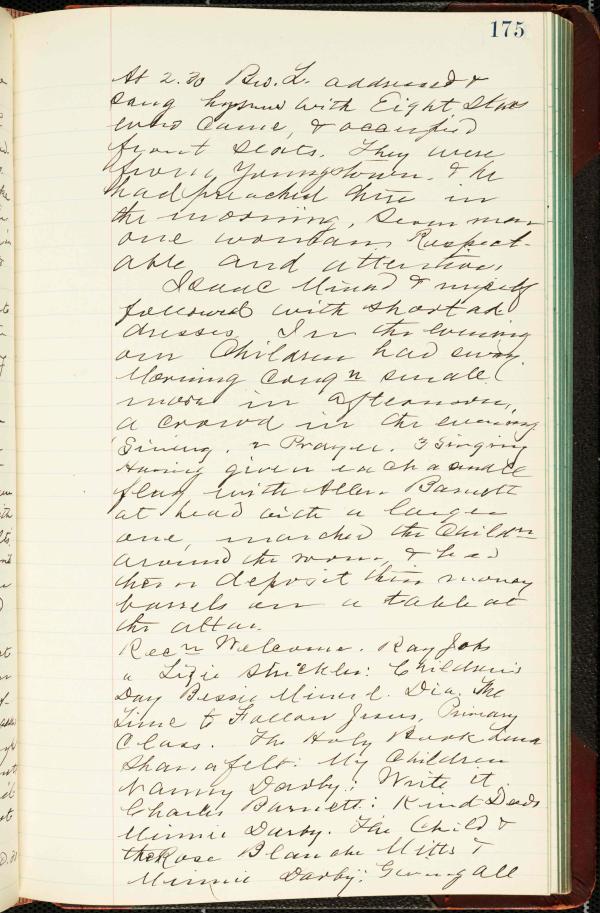 175
At 2.30 Bro. L. addressed &
sang hymns with Eight
who came, & occupied
front seats. They were
from Youngstown. & he
had preached there in
the morning, Seven men
one woman. Respect-
able and attentive.
Isaac Minerd & myself
followed with short ad-
dresses. In the evening
our Children had sway.
Morning Congn small.
more in afternoon,
a crowd in the evening
Singing. 2 Prayer. 3 Singing
Having given each a small
flag with Allen Barnett
at head with a larger
one, marched the Childrn
around the room, & had
them deposit their money
barrels on a table at
the altar.
Recn Welcome. Ray Jobs
a Lizie Strickler: Children's
Day Bessie Minerd. Dia. The
Time to Follow Jesus, Primary
Class. The Holy Book Luna
Shanafelt: My Children
Nanny Darby: Write it
Charles Barnett: Kind Deeds
Minnie Darby. The Child &
the Rose Blanche Mitts &
Minnie Darby: Giving all